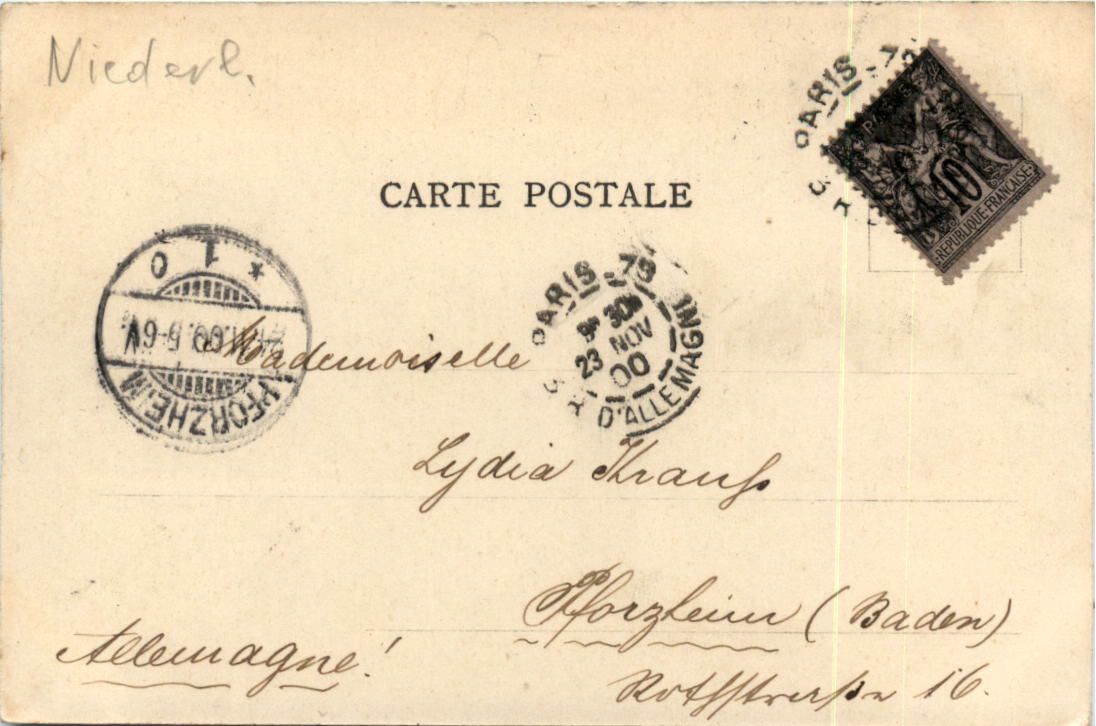 Niederl.
PARIS
CARTE POSTALE
10
RÉPUBLIQUE FRANÇAISE
* 1 0
.00.5-6V.
PFORZHEIM
PARIS - 79
9E 30M
23 NOV
00
D'ALLEMAGNE
Mademoiselle
Lydia Krauß
Pforzheim (Baden)
Allemagne!
16.